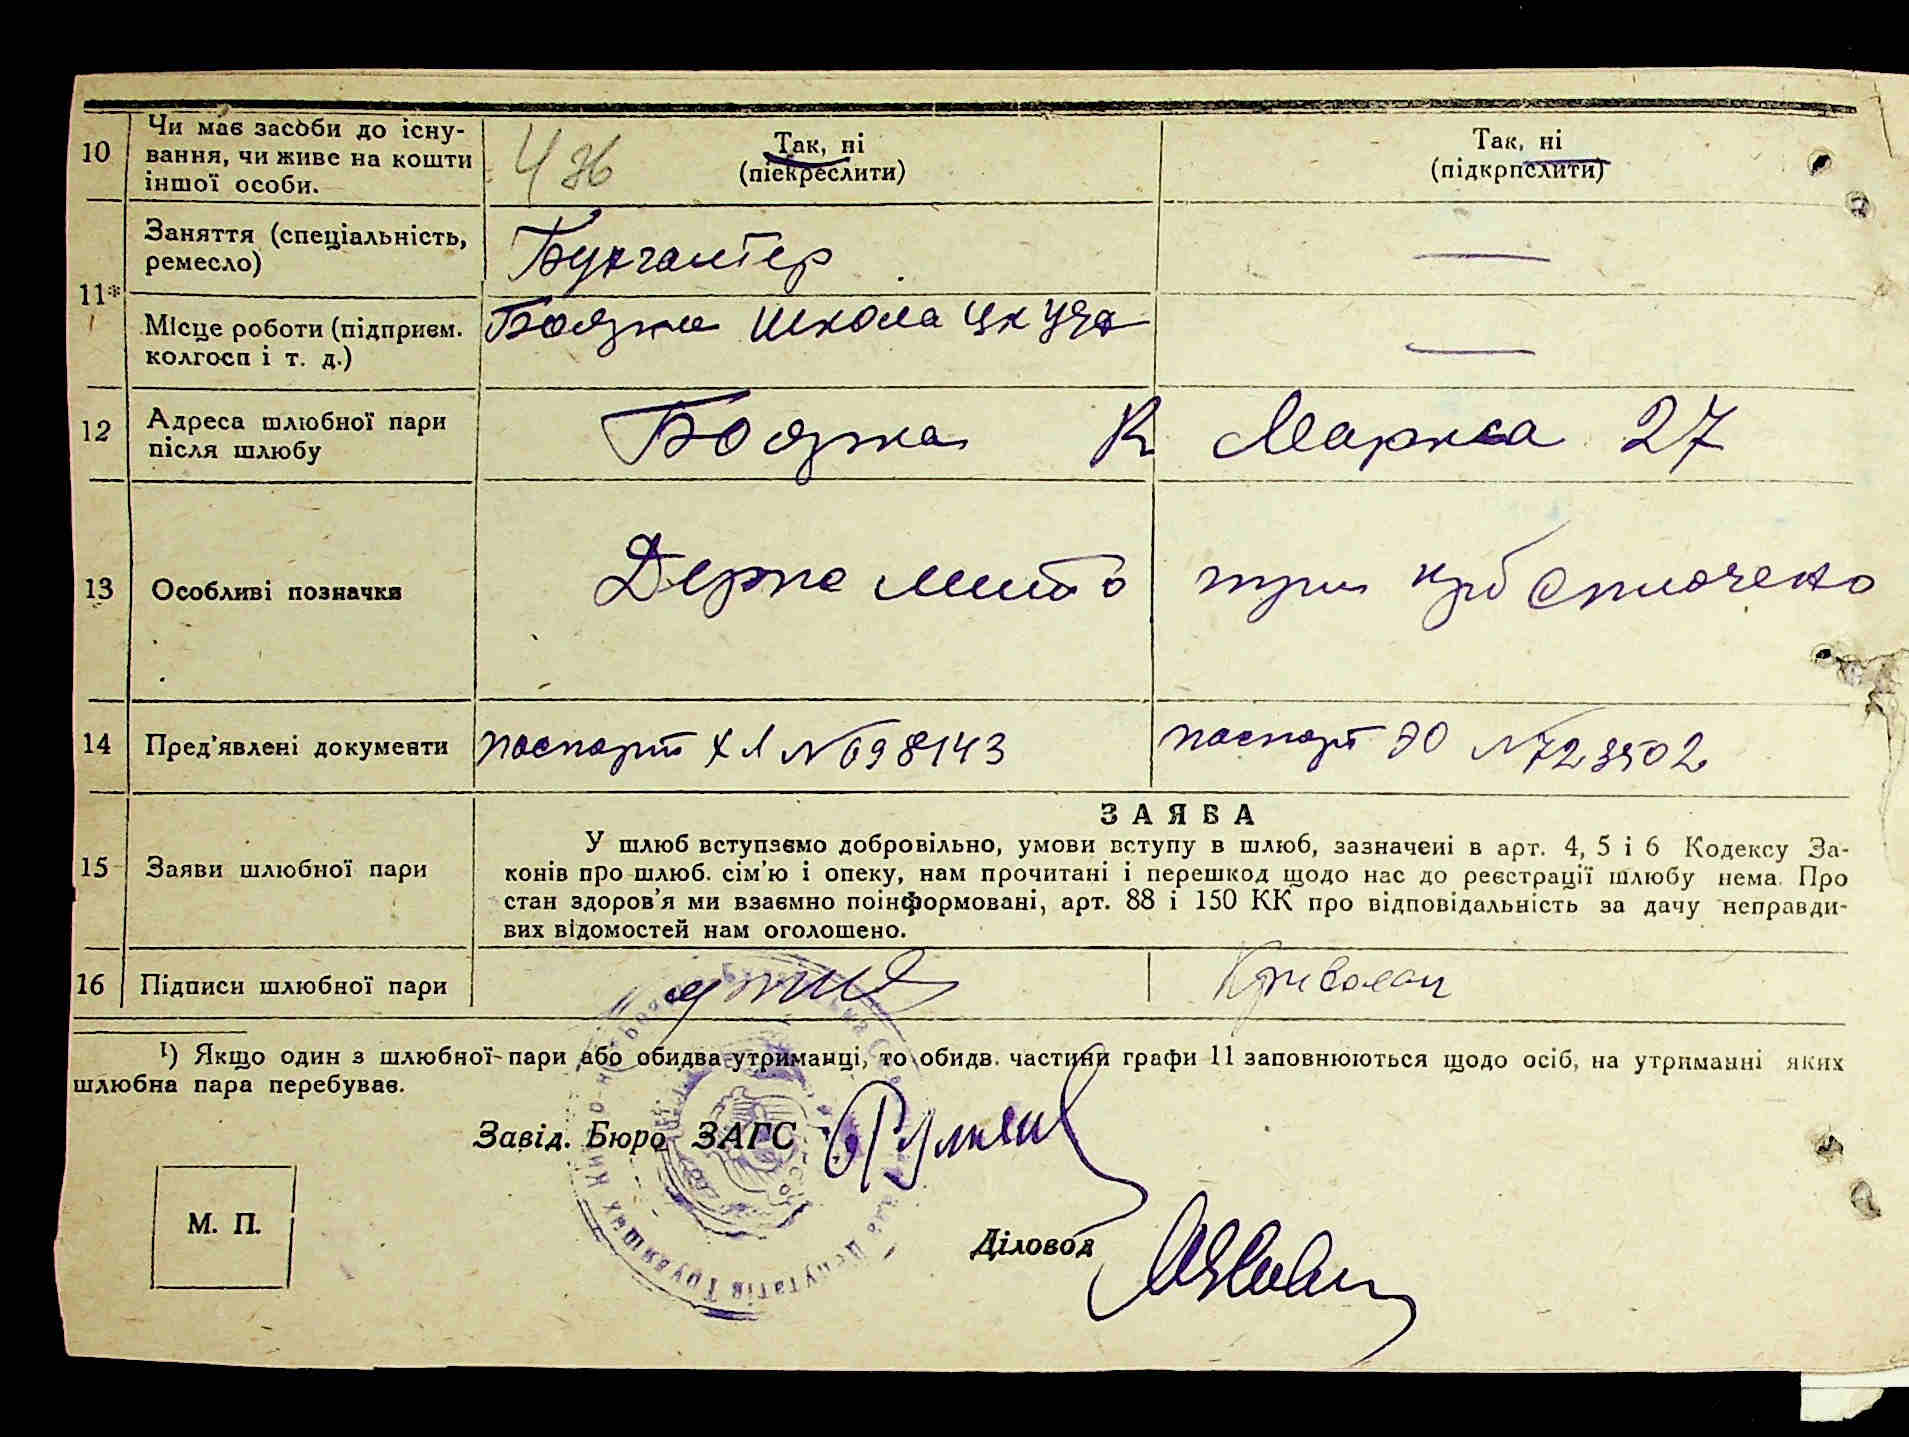 10
Чи має засоби до існу-
вання, чи живе на кошти
іншої особи.
Так, ні
(піекреслити)
Так, ні
(підкрпслити)
11*
Заняття (спеціальність,
ремесло)
Бухгалтер
Місце роботи (підприєм.
колгосп і т. д.)
Боярка школа
12
Адреса шлюбної пари
після шлюбу
Боярка К Маркса 27
13
Особливі позначки
Держ мито три крб сплочено
14
Пред'явлені документи
паспорт ХЛ №698143
паспорт ЭО №723502
15
Заяви шлюбної пари
ЗАЯВА
У шлюб вступаємо добровільно, умови вступу в шлюб, зазначені в арт. 4, 5 і 6 Кодексу За-
конів про шлюб. сім'ю і опеку, нам прочитані і перешкод щодо нас до реєстрації шлюбу нема. Про
стан здоров'я ми взаємно поінформовані, арт. 88 і 150 КК про відповідальність за дачу неправди-
вих відомостей нам оголошено.
16
Підписи шлюбної пари
¹) Якщо один з шлюбної пари або обидва утриманці, то обидв. частини графи 11 заповнюються щодо осіб, на утриманні яких
шлюбна пара перебуває.
Завід. Бюро ЗАГС
Діловод
М. П.
Депутатів Трудящих